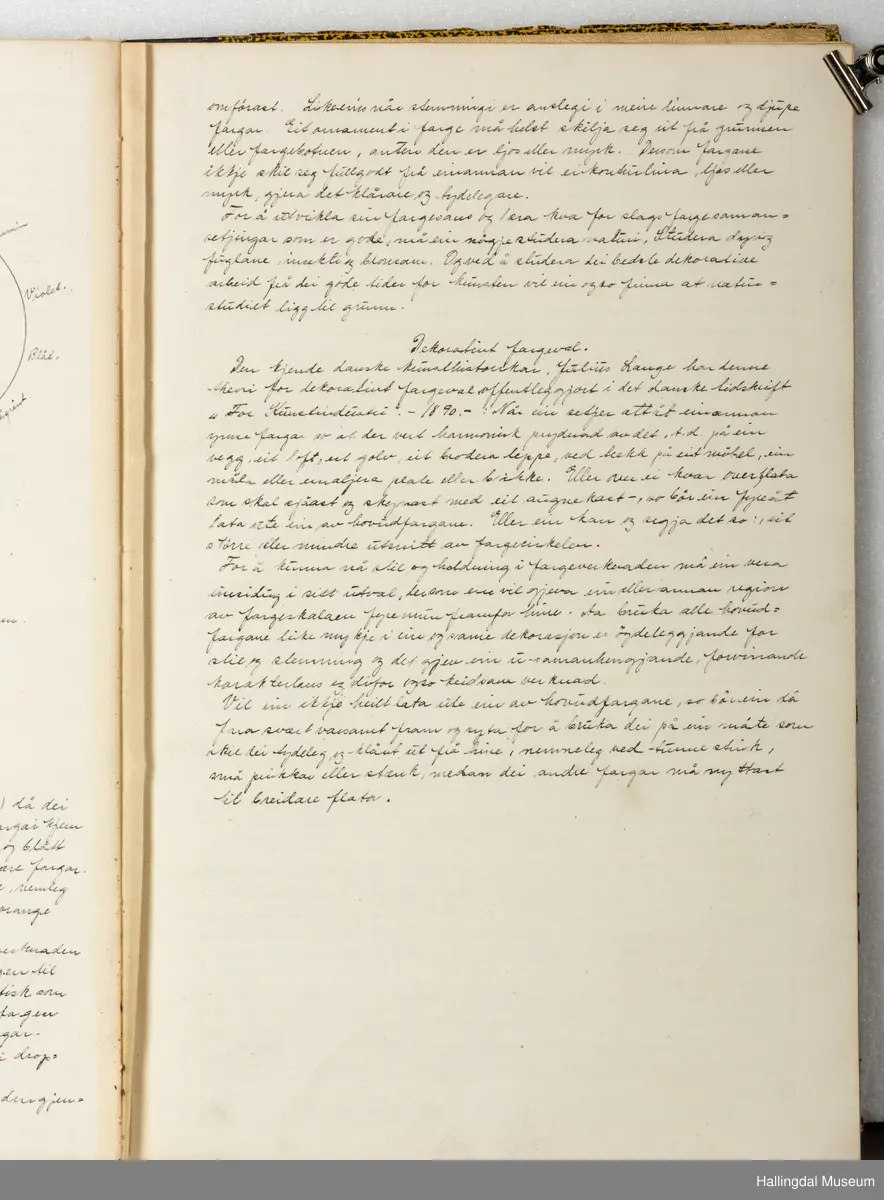 omfórast. Likeeins når stemmingi er anslegi i meire linnare og djupe
fargar. Eit ornament i farge må helst skilja seg ut frå grunnen
eller fargebotnen, anten den er ljos eller myrk. Dersom fargane
ikkje skil seg fullgodt frå einannan vil ei konturlina, ljos eller
myrk, gjera det klårare og tydelegare.
For å utvikla sin fargesans og læra kva for slags fargesaman=
setjingar som er gode, må ein nøgje studera naturi. Studera dyri og
fuglane, insekti og blomane. Og ved å studera dei bedste dekorative
arbeid frå dei gode tider for kunsten vil ein ogso finna at natur=
studiet ligg til grunn.
Dekorativt fargeval.
Den kjende danske kunsthistorikar, Julius Lange har denne
theori for dekorativt fargeval offentleggjort i det danske tidskrift
„For Kunstindustri". - 1890. - : Når ein setjer attåt einannan
ymse fargar so at der vert harmonisk prydnad av det, t.d. på ein
vegg, eit loft, eit golv, eit brodera teppe, ved trekk på eit møbel, ein
måla eller emaljera plate eller brikke. Eller over ei kvar overflata
som skal sjåast og skoynast med eit augnekast -, so bór ein fyreåt
lata ute ein av hovudfargane. Eller ein kan og segja det so:, eit
större eller mindre utsnitt av fargecirkelen.
For å kunna nå stil og holdning i fargeverknaden må ein vera
einsidug i sitt utval, dersom ein vil gjeva ein eller annan region
av fargeskalaen fyremun framfor hine. Aa bruka alle hovud=
fargane like mykje i ein og same dekorasjon er öydeleggjande for
stil og stemning og det gjev ein u-samanhengjande, forvirrande
karakterlaus og difor ogso keidsam verknad.
Vil ein ikkje heilt lata ute ein av hovudfargane, so bór ein då
fara svært varsamt fram og syta for å bruka dei på ein måte som
skil dei tydeleg og klårt ut frå hine, nemneleg ved tunne strik,
små prikkar eller strek, medan dei andre fargar må nyttast
til breidare flata.
Violet.
Blåt.
) då dei
og blått
fargar.
, nemleg
orange
verknaden
til
som
fagen
drop=
gjen=
Hallingdal Museum